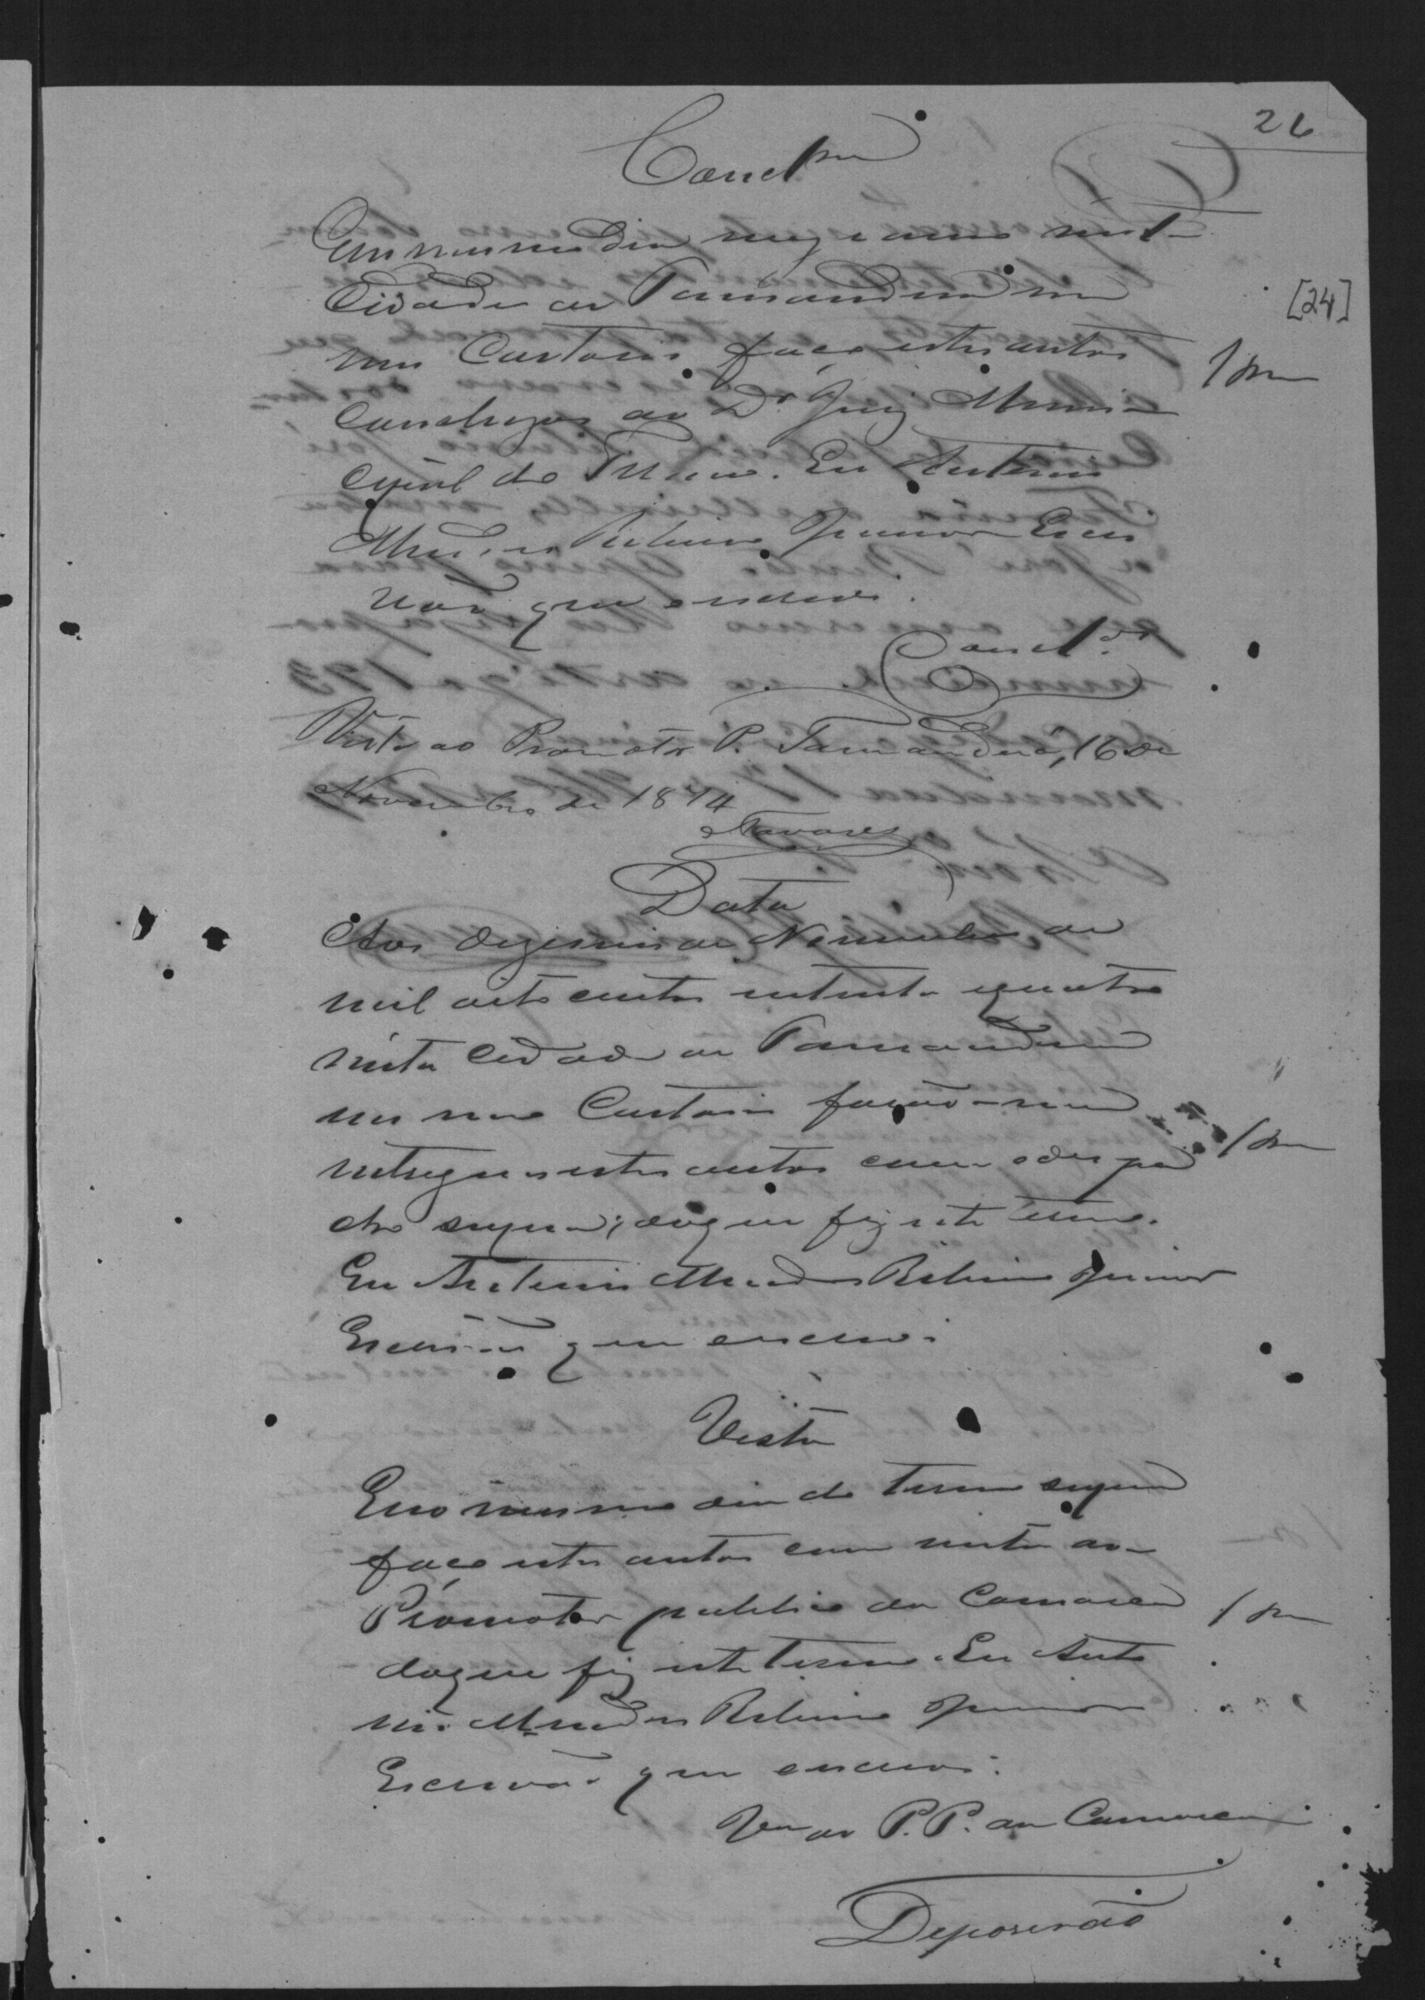 26
Concl.am
Em o mesmo dia mez e anno nesta
Cidade de Tamanduá em
meu Cartorio faço estes autos
[24]
conclusos ao Dr. Juiz Muni-
cipal do Termo. Eu Antonio
Mendes Ribeiro Junior Escri
vão que escrevi.
Concl.os
Vista ao Promotor P. Tamanduá, 16 de
Novembro de 1874
Tavares
Data
Aos dezesseis de Novembro de
mil oito centos setenta e quatro
nesta Cidade de Tamanduá
em meu Cartorio forão-me
entregues estes autos com o despa
cho supra; do que fiz este termo.
Eu Antonio Mendes Ribeiro Junior
Escrivão que escrevi.
Vista
Em o mesmo dia do termo supra
faço estes autos com vista ao
Promotor publico da Comarca
do que fiz este termo. Eu Anto
nio Mendes Ribeiro Junior
Escrivão que escrevi.
ao P. P. da Comarca